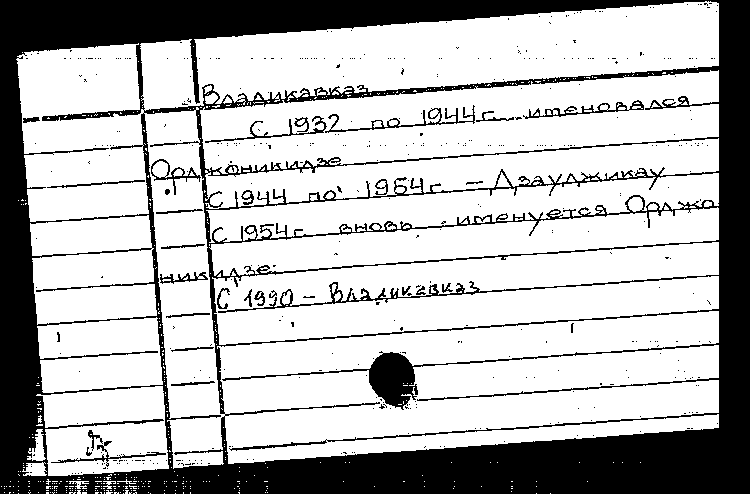 Владикавказ
С 1932 по 1944г. именовался
Орджоникидзе
С 1944 по 1954г. – Дзауджикау
С 1954г. вновь именуется Орджо
никидзе.
С 1990 – Владикавказ